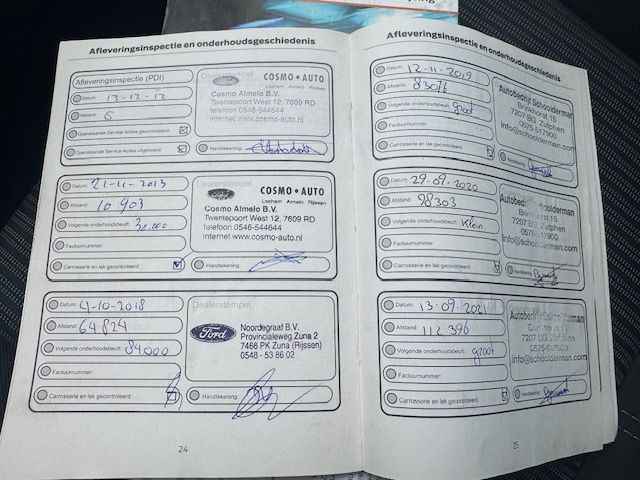 Afleveringsinspectie en onderhoudsgeschiedenis
Afleveringsinspectie (PDI)
Datum: 13-12-12
Afstand: 5
Openstaande Service Acties gecontroleerd
Openstaande Service Acties uitgevoerd
Ford COSMO • AUTO
Lochem Almelo Rijssen
Cosmo Almelo B.V.
Twentepoort West 12, 7609 RD
telefoon 0546-544644
internet www.cosmo-auto.nl
Handtekening:
Datum: 21-11-2013
Afstand: 10 903
Volgende onderhoudsbeurt: 30.000
Factuurnummer:
Carrosserie en lak gecontroleerd:
Ford COSMO • AUTO
Lochem Almelo Rijssen
Cosmo Almelo B.V.
Twentepoort West 12, 7609 RD
telefoon 0546-544644
internet www.cosmo-auto.nl
Handtekening:
Datum: 4-10-2018
Afstand: 64824
Volgende onderhoudsbeurt: 84000
Factuurnummer:
Carrosserie en lak gecontroleerd:
Dealerstempel:
Ford
Noordegraaf B.V.
Provincialeweg Zuna 2
7466 PK Zuna (Rijssen)
0548 - 53 86 02
Handtekening:
24
Afleveringsinspectie en onderhoudsgeschiedenis
Datum: 12-11-2019
Afstand:
Volgende onderhoudsbeurt: groot
Factuurnummer:
Carrosserie en lak gecontroleerd:
Autobedrijf Schooldermann
7207 BG Zutphen
0575-517900
info@schooldermann.com
Handtekening:
Datum: 29-09-2020
Afstand: 98303
Volgende onderhoudsbeurt: Klein
Factuurnummer:
Carrosserie en lak gecontroleerd:
Handtekening:
Datum: 13-09-2021
Afstand: 112 396
Volgende onderhoudsbeurt: groot
Factuurnummer:
Carrosserie en lak gecontroleerd:
Handtekening: